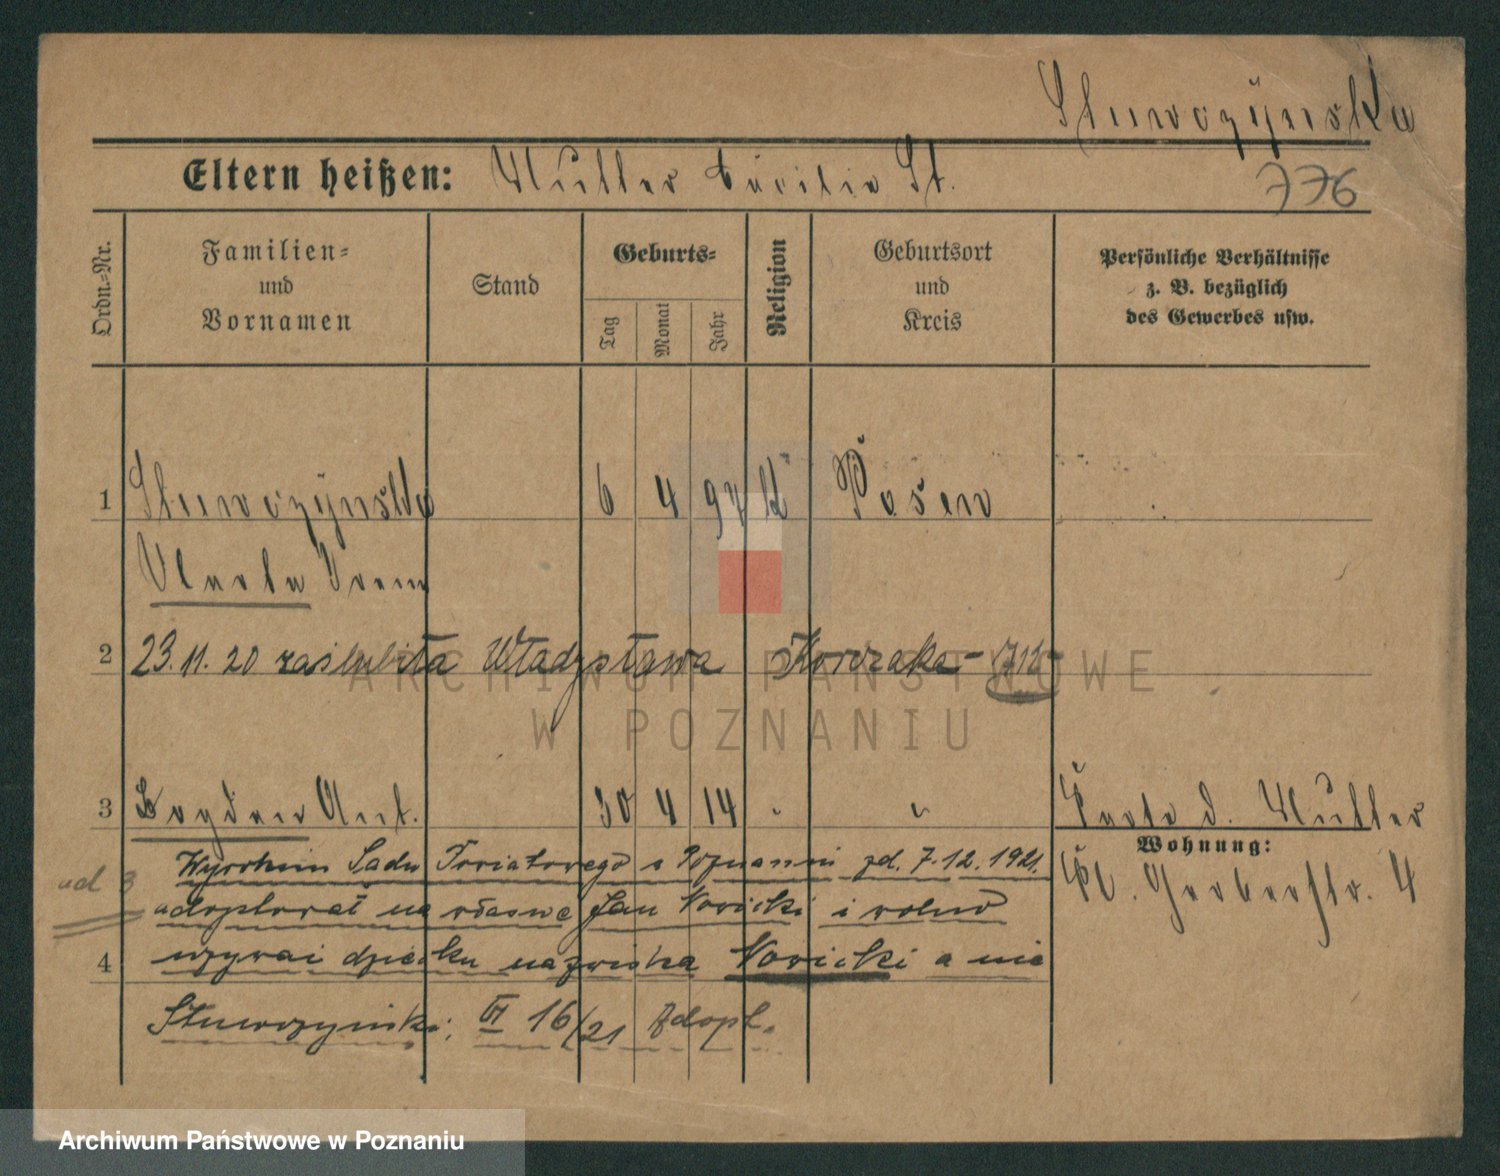 Stuwczynska
Eltern heißen: Muller Cäcilie St.
776
Ordn.=Nr.
Familien=
und
Vornamen
Stand
Geburts=
Tag
Monat
Jahr
Religion
Geburtsort
und
Kreis
Persönliche Verhältnisse
z. B. bezüglich
des Gewerbes usw.
1 Stuwczynska 6 4 97 K Posen
Irena
2 23.11.20 zaślubiła Władysława Korczaka - 
3 Bogdan Ant. 30 4 14 " "
d. Mutter
Wohnung:
Kl. Gerberstr. 4
Wyrokiem Sądu Powiatowego w Poznaniu zd. 7.12.1921.
ad 3
adoptował na własne Jan Nowicki i wolno
4 używać dziecku nazwiska Nowicki a nie
Stuwczyński. VI 16/21 Adopt.
ARCHIWUM PAŃSTWOWE
W POZNANIU
Archiwum Państwowe w Poznaniu